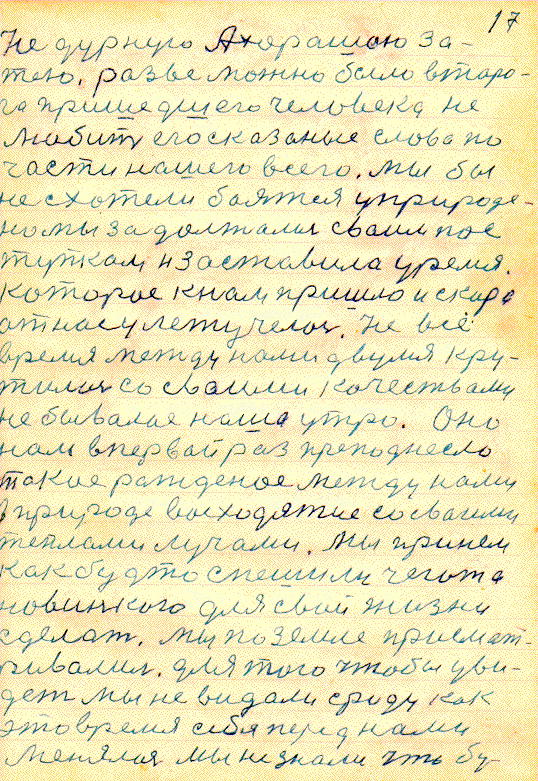 17
Не дурную А хорошою за-
тею. разве можно было в таро-
га пришедшего человека не
любить его сказаные слова по
части нашего всего. мы бы
не схотели боятся у природе-
но мы задолжали своим пос
тупкам и заставила уремя.
которое к нам пришло и скоро
от нас улетучелос. Не всё
время между нами двумя кру-
тилос со своими качествами
не бывалае наша утро. Оно
нам впервай раз преподнесло
такие ражденое между нами
в природе высходятие со своими
теплами лучами. мы принем
как будто спешили чегото
новинкого для свой жизни
сделат. мы по земле присмат-
ривалис. для того чтобы уви-
дет мы не видали сриду как
это время себя перед нами
менялос мы незнали что бу-